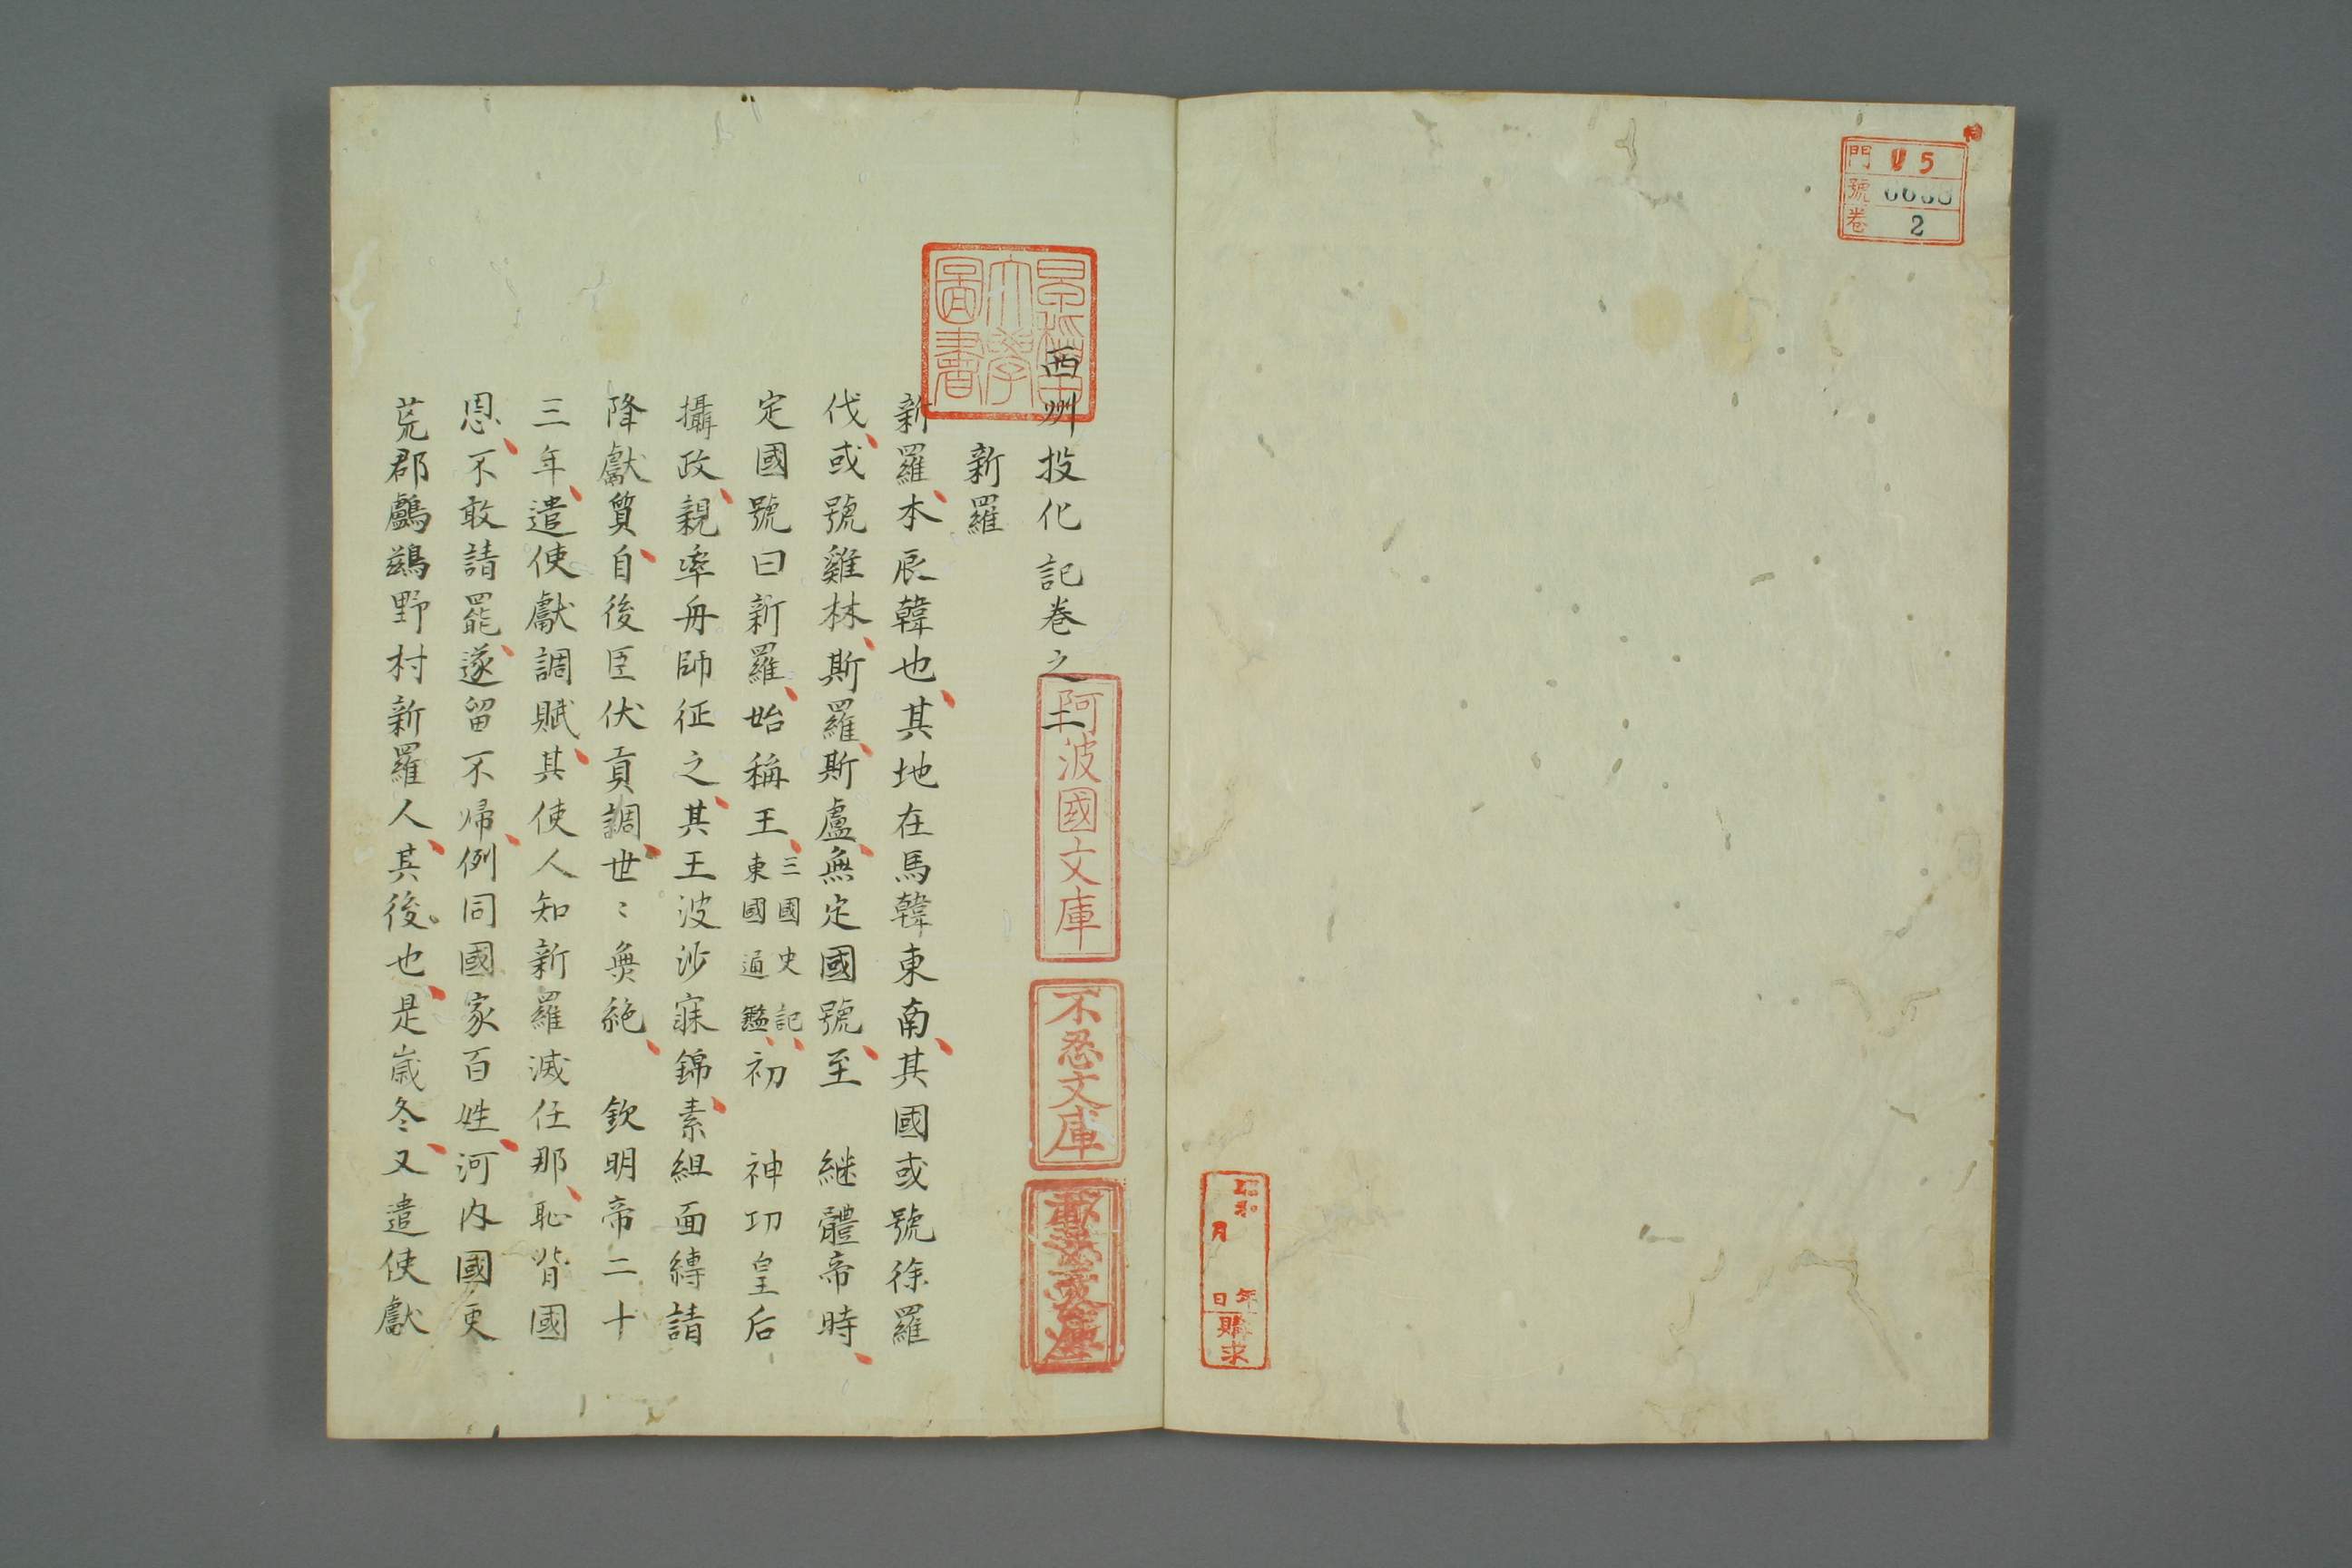 門 5
號
卷 2
月
日 年
購求
西州投化記卷之二
新羅
新羅本辰韓也其地在馬韓東南其國或號徐羅
伐或號雞林斯羅斯盧無定國號至 継體帝時
定國號曰新羅始稱王三國史記東國通鑑初 神功皇后
攝政親率舟師征之其王波沙寐錦素組面縛請
降獻質自後臣伏貢調世〻無絶 欽明帝二十
三年遣使獻調賦其使人知新羅滅任那恥背國
恩不敢請罷遂留不帰例同國家百姓河内國更
荒郡鸕鷀野村新羅人其後也是歳冬又遣使獻
阿波國文庫
不忍文庫